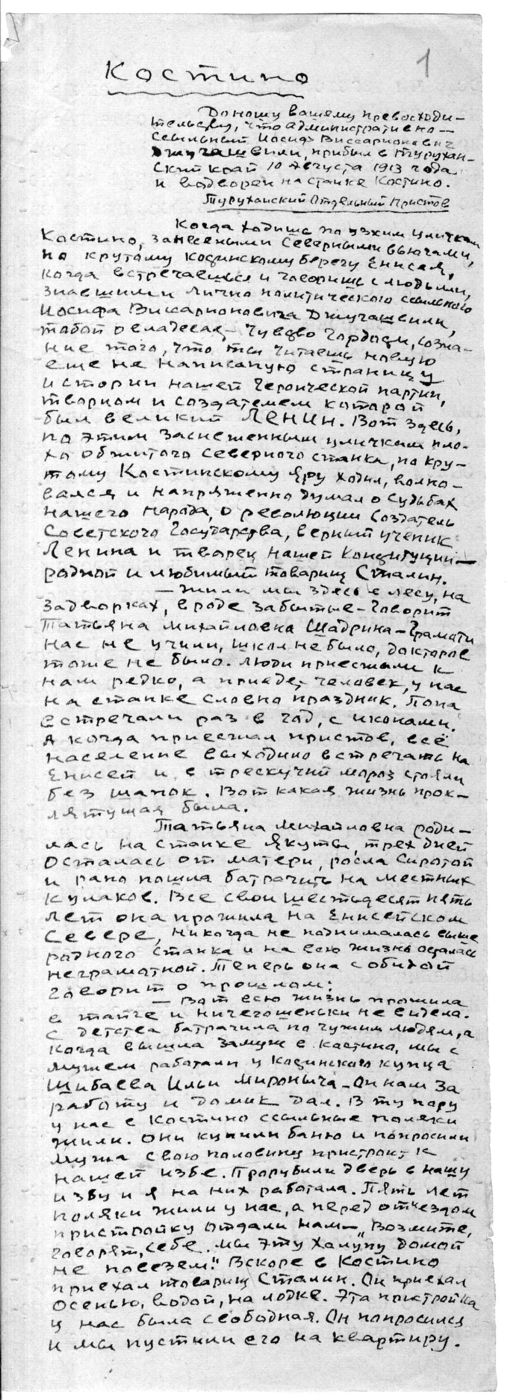 1
Костино
Доношу вашему превосходи-
тельству, что административно-
ссыльный Иосиф Виссарионович
Джугашвили, прибыл в Турухан-
ский край 10 Августа 1913 года
и водворен на станке Костино.
Туруханский Отдельный Пристав
Когда ходишь по узким уличкам
Костино, занесеными Северными вьюгами,
по крутому Костинскому берегу Енисея,
когда встречаешься и говоришь с людьми,
знавшими лично политического ссыльного
Иосифа Виссарионовича Джугашвили,
тобой овладевает чувство гордости, созна-
ние того, что ты читаешь новую
еще не написаную страницу
истории нашей героической партии,
творцом и создателем которой
был великий ЛЕНИН. Вот здесь,
по этим заснеженным уличкам пло-
хо обжитого северного станка, по кру-
тому Костинскому Яру ходил, волно-
вался и напряженно думал о судьбах
нашего народа, о революции Создатель
Советского Государства, верный ученик
Ленина и творец нашей Конституции—
родной и любимый товарищ Сталин.
— Жили мы здесь в лесу, на
задворках, вроде забытые-говорит
Татьяна Михайловна Шадрина-Грамоти
нас не учили, школ не было, докторов
тоже не было. Люди приезжали к
нам редко, а приедет человек, у нас
на станке словно праздник. Попа
встречали раз в год, с иконами.
А когда приезжал пристов, всё
население выходило встречать на
Енисей и в трескучий мороз стояли
без шапок. Вот какая жизнь прок-
лятущая была.
Татьяна Михайловна роди-
лась на станке Якуты, трех дней
осталась от матери, росла Сиротой
и рано пошла батрачить на местных
кулаков. Все свои шестьдесят пять
лет она прожила на Енисейском
Севере, никогда не поднималась выше
родного станка и на всю жизнь осталась
неграмотной. Теперь она с обидой
говорит о прошлом:
— Вот всю жизнь прожила
в тайге и ничегошеньки не видела.
С детства батрачила по чужим людям, а
когда вышла замуж в Костино, мы с
мужем работали у Костинского купца
Шибаева Ильи Мироныча-Он нам за
работу и домик дал. В ту пору
у нас в Костино ссыльные поляки
жили. Они купили баню и попросили
мужа свою половину пристроить к
нашей избе. Прорубили дверь в нашу
избу и я на них работала. Пять лет
поляки жили у нас, а перед отъездом
пристройку отдали нам— „Возмите,
говорят, себе. мы эту халупу домой
не повезем". Вскоре в Костино
приехал товарищ Сталин. Он приехал
осенью, водой, на лодке. Эта пристройка
у нас была свободная. Он попросился
и мы пустили его на квартиру.